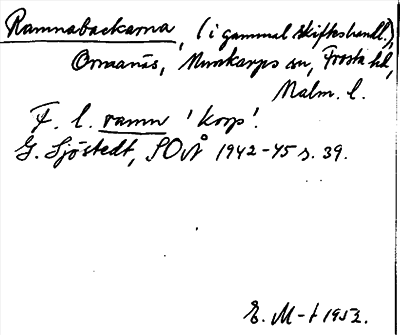 Ramnabackarna, (i gammal skifteshandl.),
Ormanäs, Munkarps sn, Frosta hd,
Malm. l.
F. l. ramn 'korp'.
G. Sjöstedt, SOÅ 1942-45 s. 39.
E. M-t 1952.